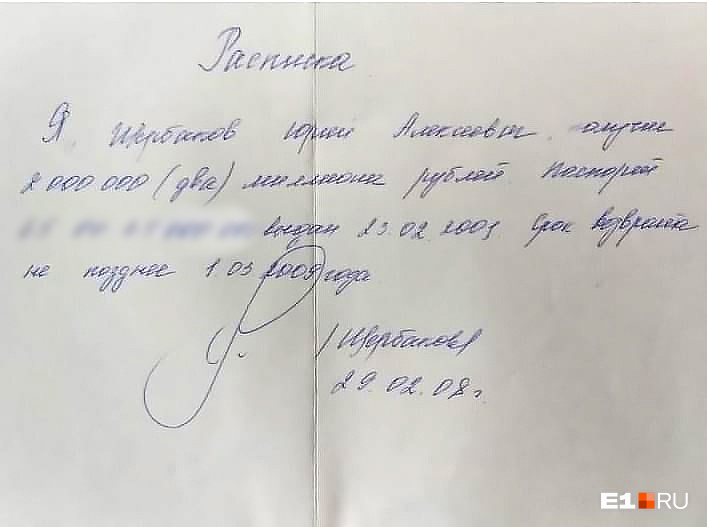 Расписка
Я, Щербаков Юрий Алексеевич, получил
2 000 000 (два) миллиона рублей. Паспорт
выдан 23.02.2003. Срок возврата
не позднее 1.03.2009 года.
/Щербаков
29.02.08 г.
E1.RU